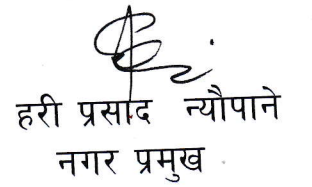 हरी प्रसाद न्यौपाने
नगर प्रमुख